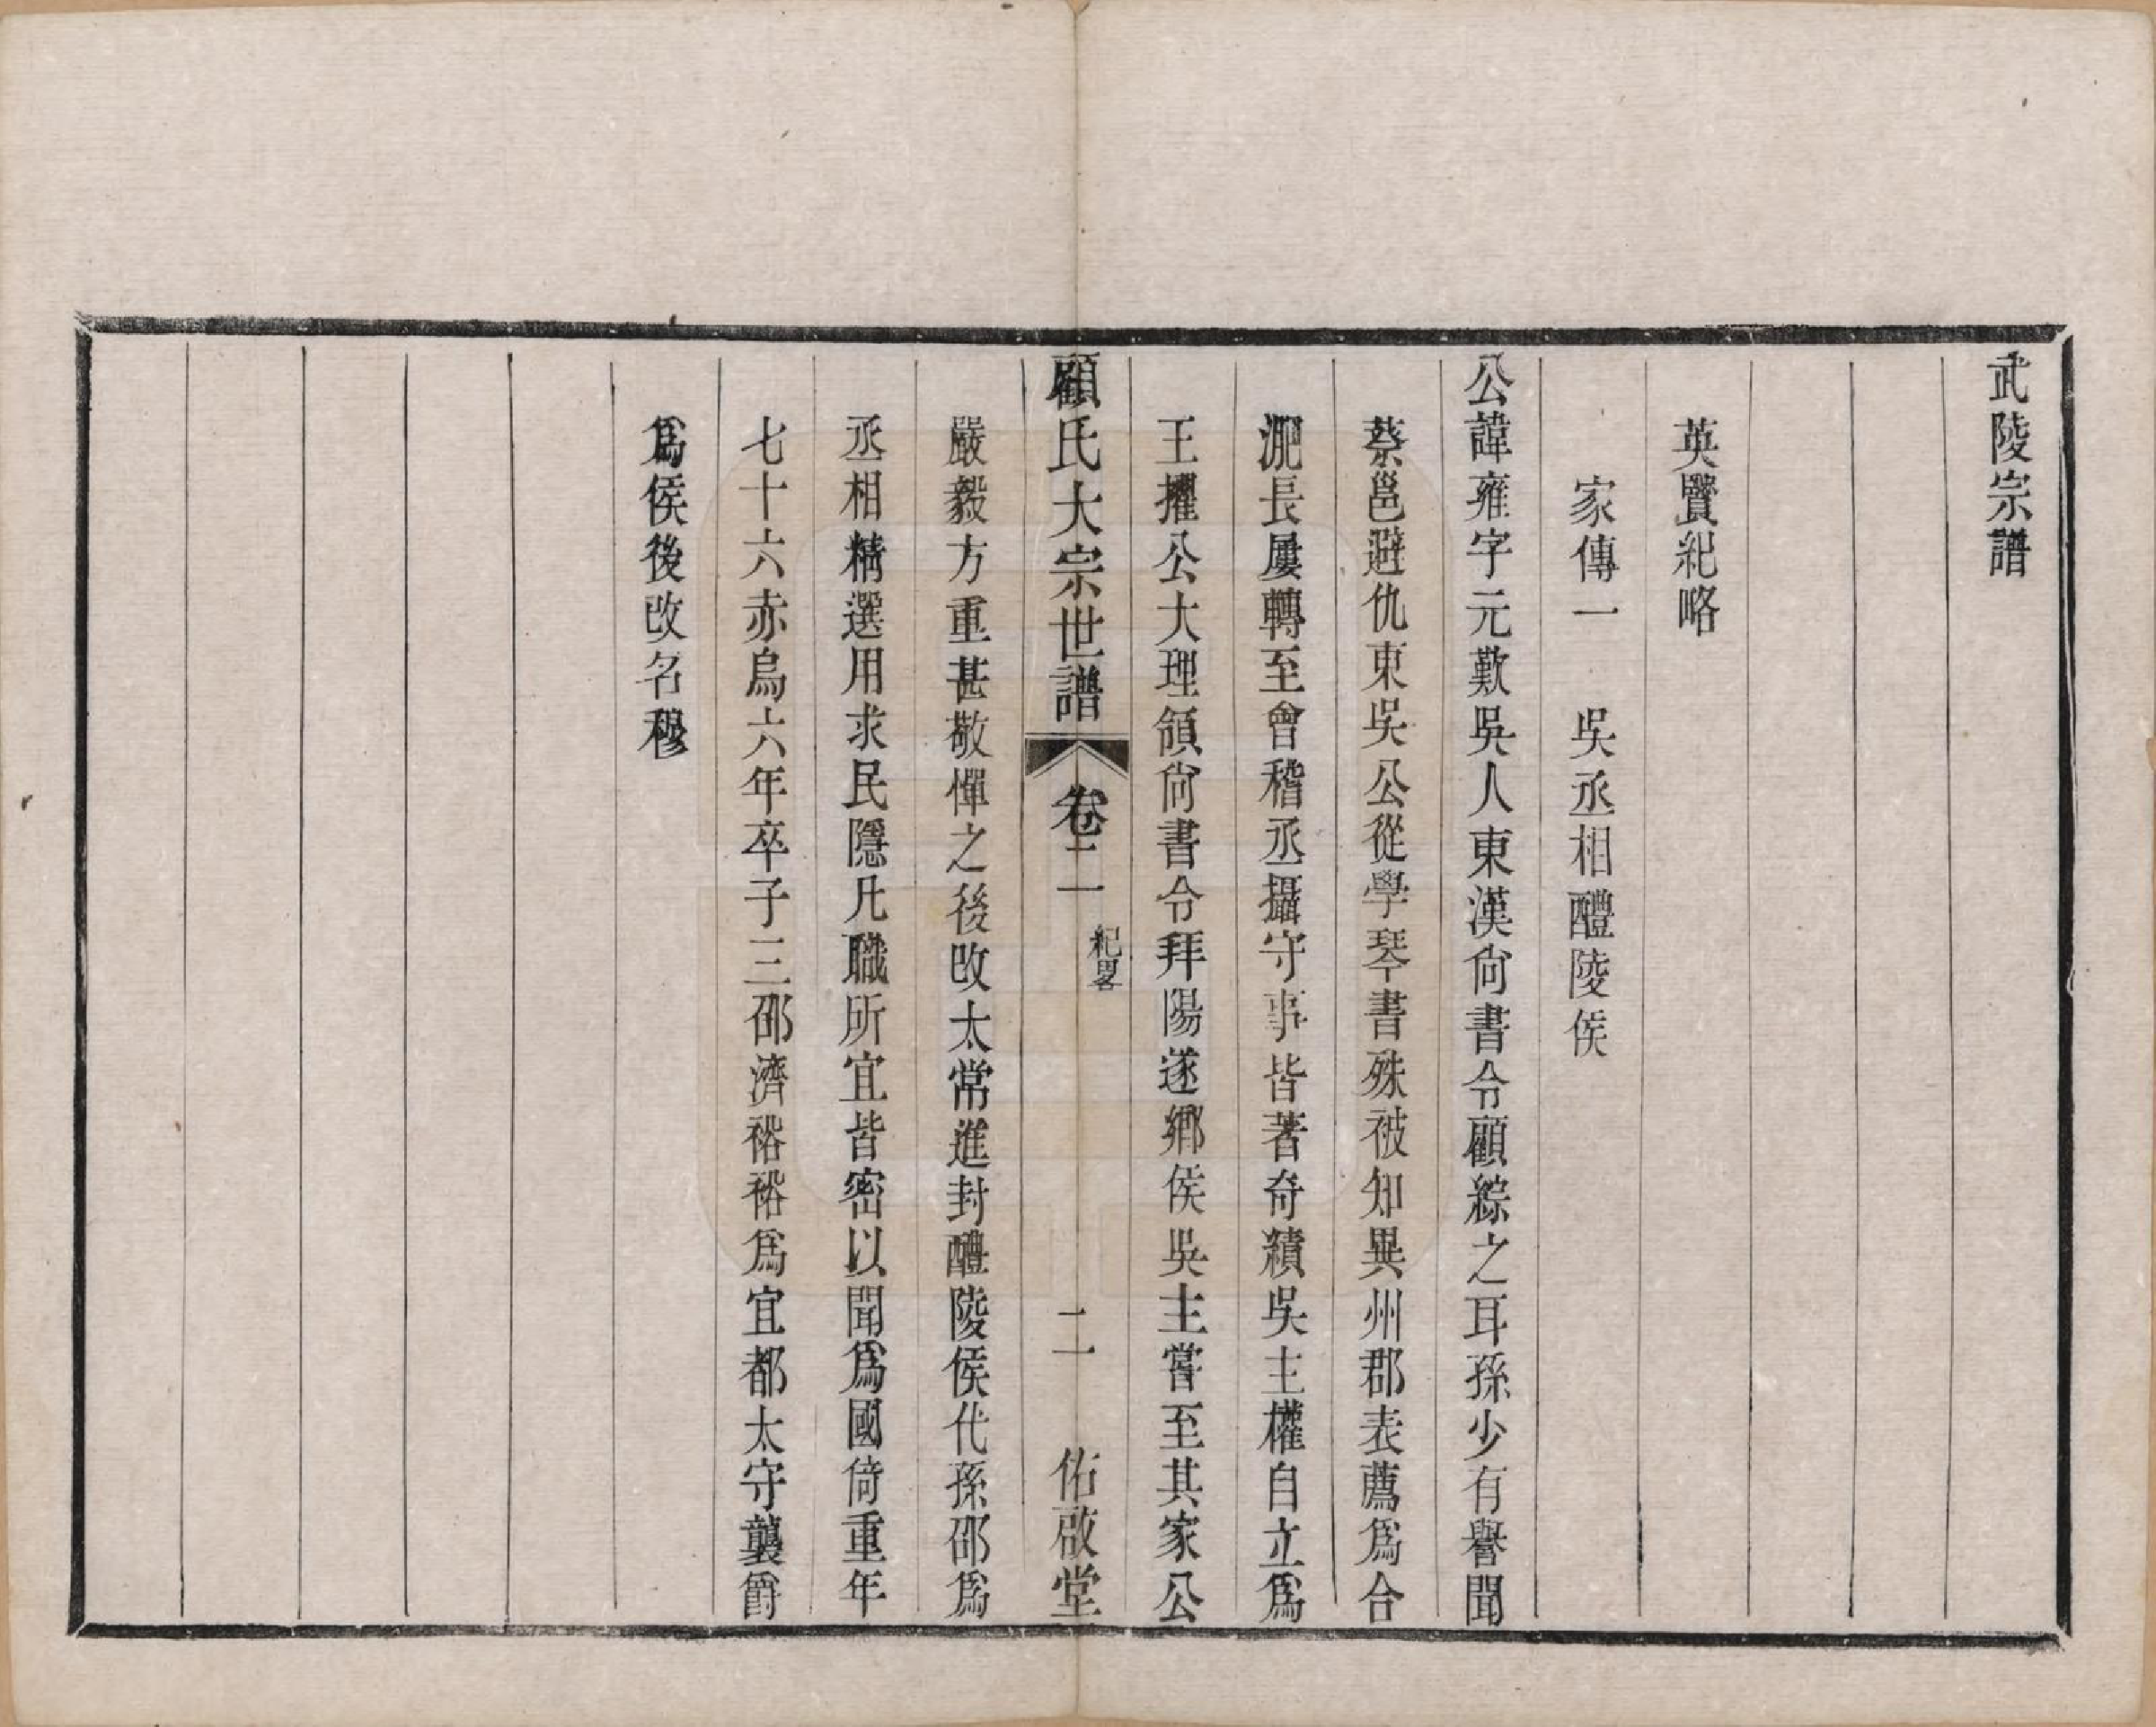 武陵宗譜
英賢紀略
家傳一　吳丞相醴陵侯
公諱雍字元歎吳人東漢尙書令顧綜之耳孫少有譽聞
蔡邕避仇東吳公從學琴書殊被知異州郡表薦爲合
淝長屢轉至會稽丞攝守事皆著奇績吳主權自立爲
王擢公大理領尙書令拜陽遂鄉侯吳主嘗至其家公
顧氏大宗世譜　卷二　紀畧　二　佑啟堂
嚴毅方重甚敬憚之後改太常進封醴陵侯代孫邵爲
丞相精選用求民隱凡職所宜皆密以聞爲國倚重年
七十六赤烏六年卒子三邵濟裕裕爲宜都太守襲爵
爲侯後改名穆